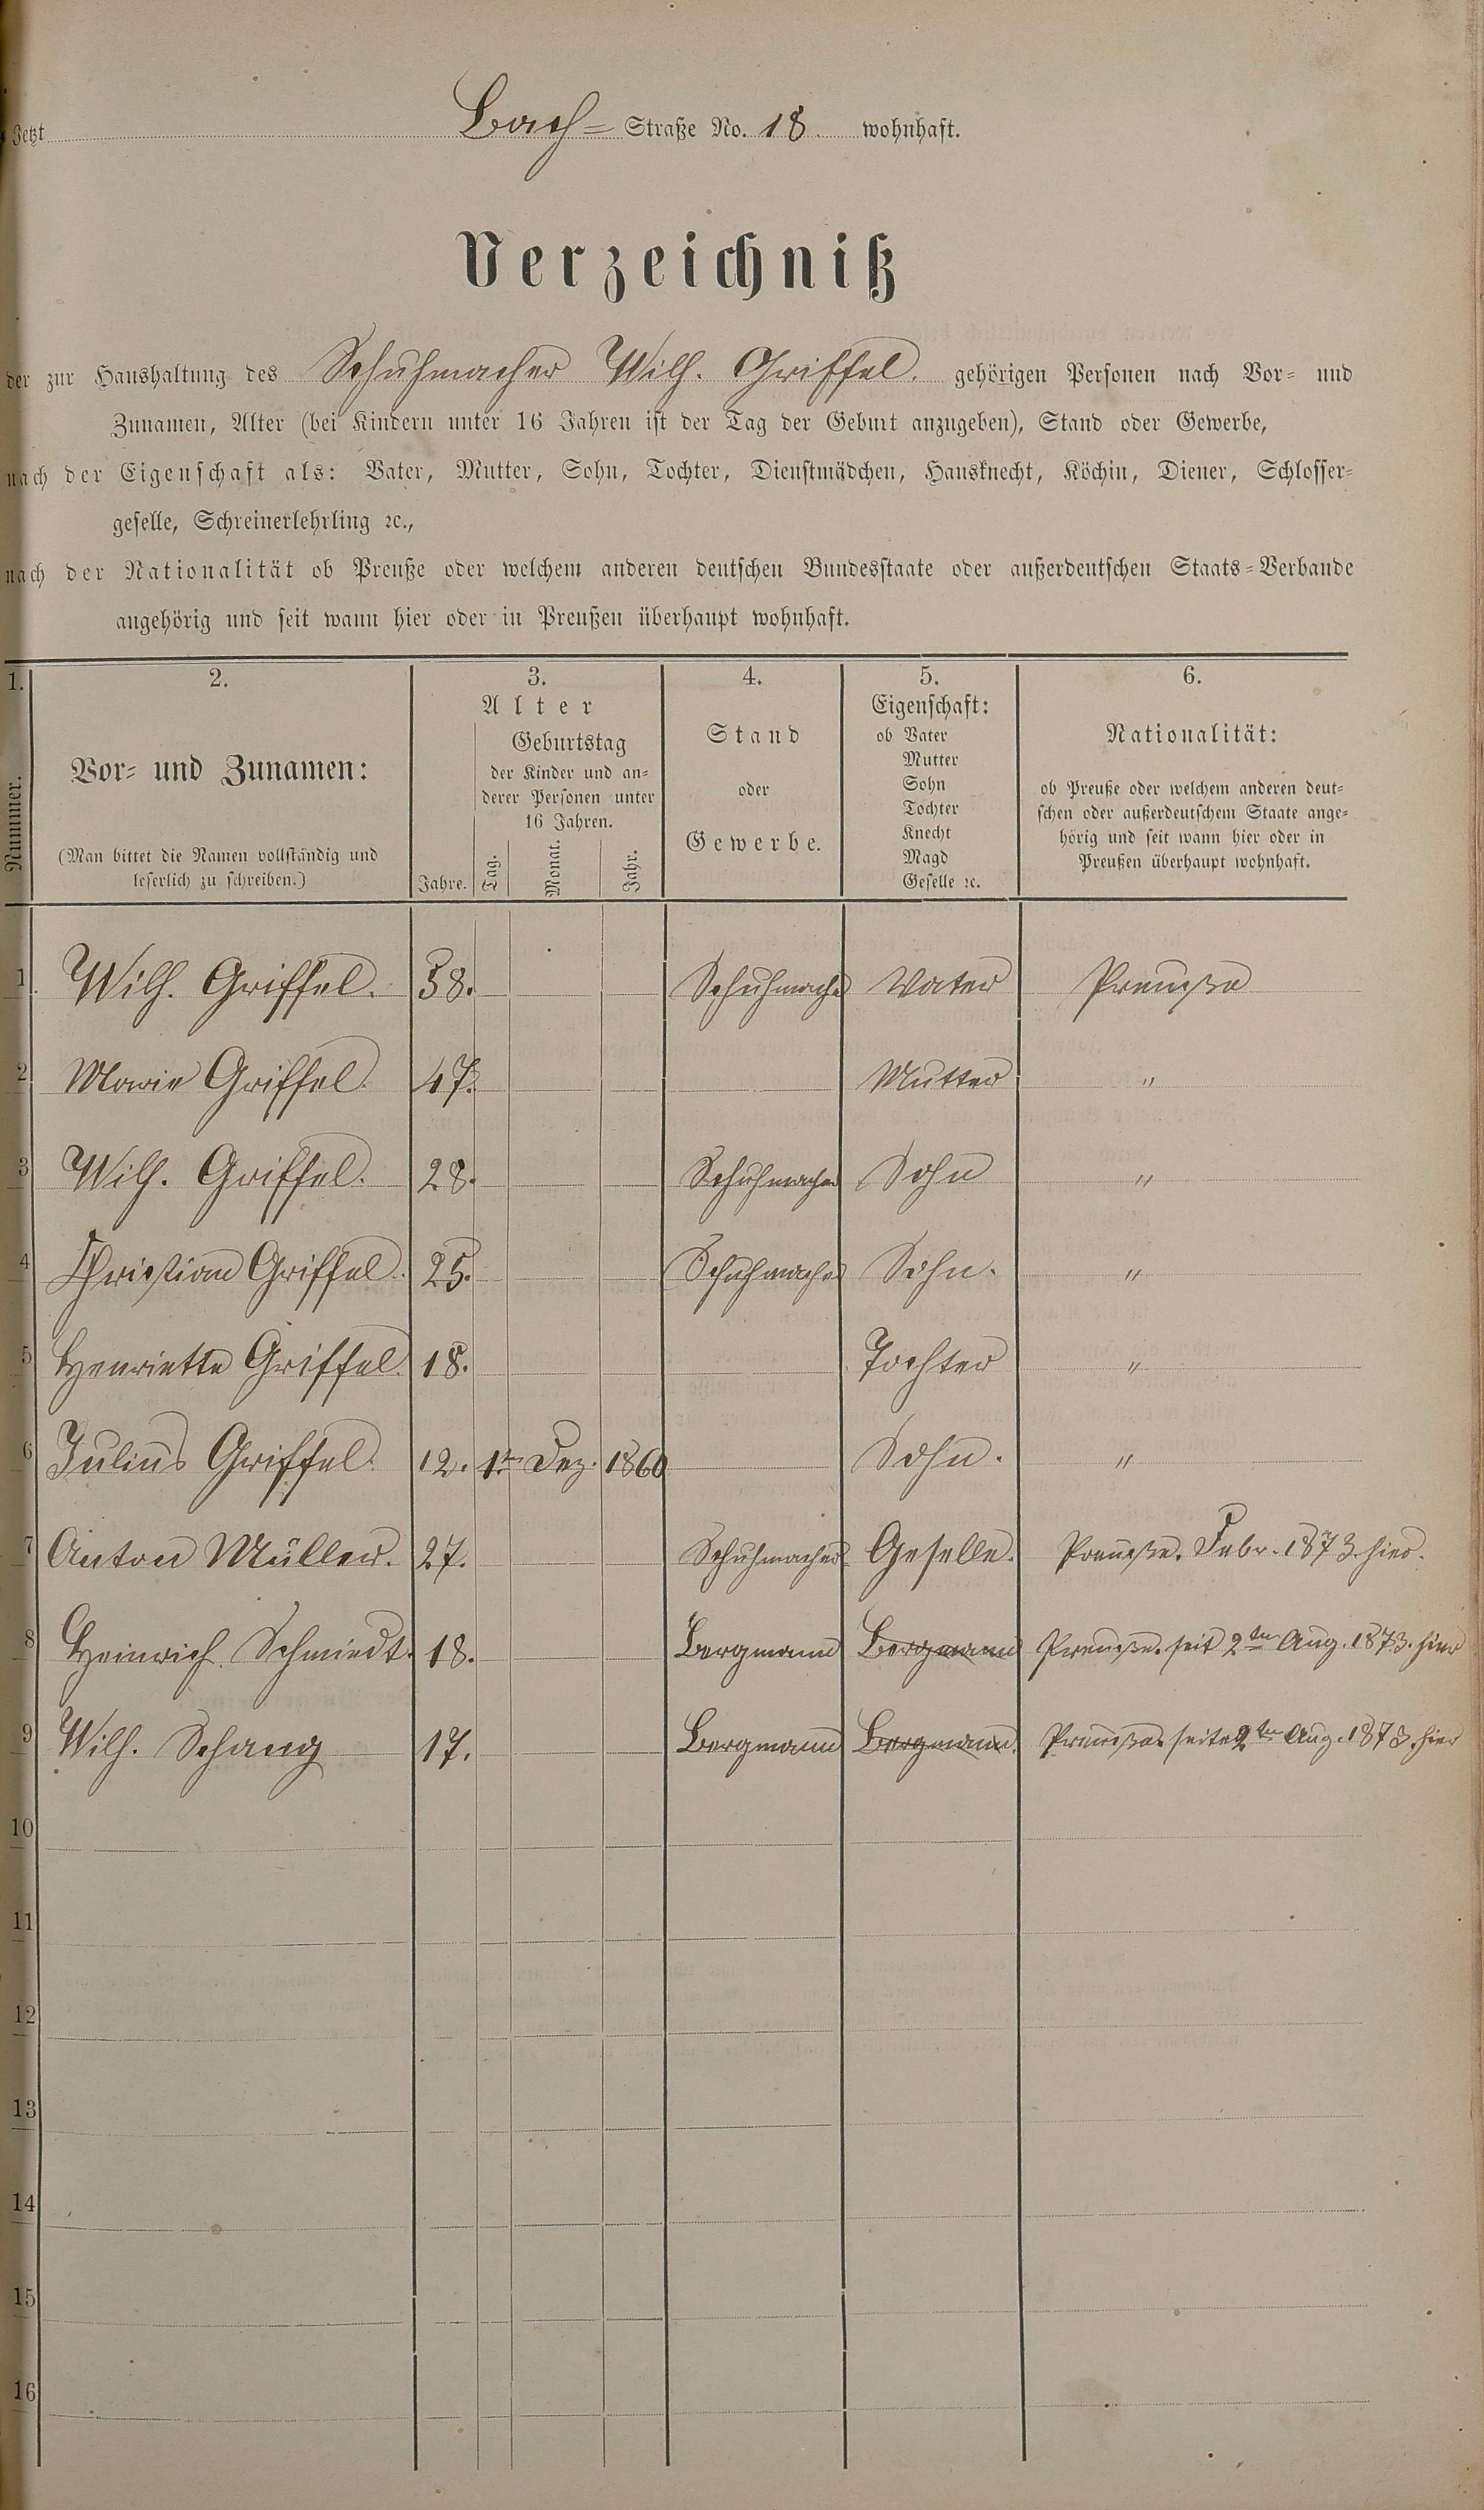 Jetzt Bach= Straße No. 18. wohnhaft.
Verzeichniß
der zur Haushaltung des Schuhmacher Wilh. Griffel. gehörigen Personen nach Vor= und
Zunamen, Alter (bei Kindern unter 16 Jahren ist der Tag der Geburt anzugeben), Stand oder Gewerbe,
nach der Eigenschaft als: Vater, Mutter, Sohn, Tochter, Dienstmädchen, Hausknecht, Köchin, Diener, Schlosser=
geselle, Schreinerlehrling ꝛc.,
nach der Nationalität ob Preuße oder welchem anderen deutschen Bundesstaate oder außerdeutschen Staats=Verbande
angehörig und seit wann hier oder in Preußen überhaupt wohnhaft.
1.
Nummer.
2.
Vor= und Zunamen:
(Man bittet die Namen vollständig und
leserlich zu schreiben.)
3.
Alter
Geburtstag
der Kinder und an=
derer Personen unter
16 Jahren.
Jahre. Tag. Monat. Jahr.
4.
Stand
oder
Gewerbe.
5.
Eigenschaft:
ob Vater
Mutter
Sohn
Tochter
Knecht
Magd
Geselle ꝛc.
6.
Nationalität:
ob Preuße oder welchem anderen deut=
schen oder außerdeutschem Staate ange=
hörig und seit wann hier oder in
Preußen überhaupt wohnhaft.
1 Wilh. Griffel. 58. Schuhmacher Vater Preuße
2 Marie Griffel. 47. Mutter "
3 Wilh. Griffel. 28. Schuhmacher Sohn "
4 Christian Griffel. 25. Schuhmacher Sohn. "
5 Henriette Griffel. 18. Tochter "
6 Julius Griffel. 12. 1te Dez. 1860 Sohn. "
7 Anton Müller. 27. Schuhmacher Geselle. Preuße. Febr. 1873. hier.
8 Heinrich Schmiedt. 18. Bergmann Bergmann Preuße. seit 2ten Aug. 1873. hier
9 Wilh. Schang 17. Bergmann Bergmann. Preuße seit 2ten Aug. 1873. hier
10
11
12
13
14
15
16